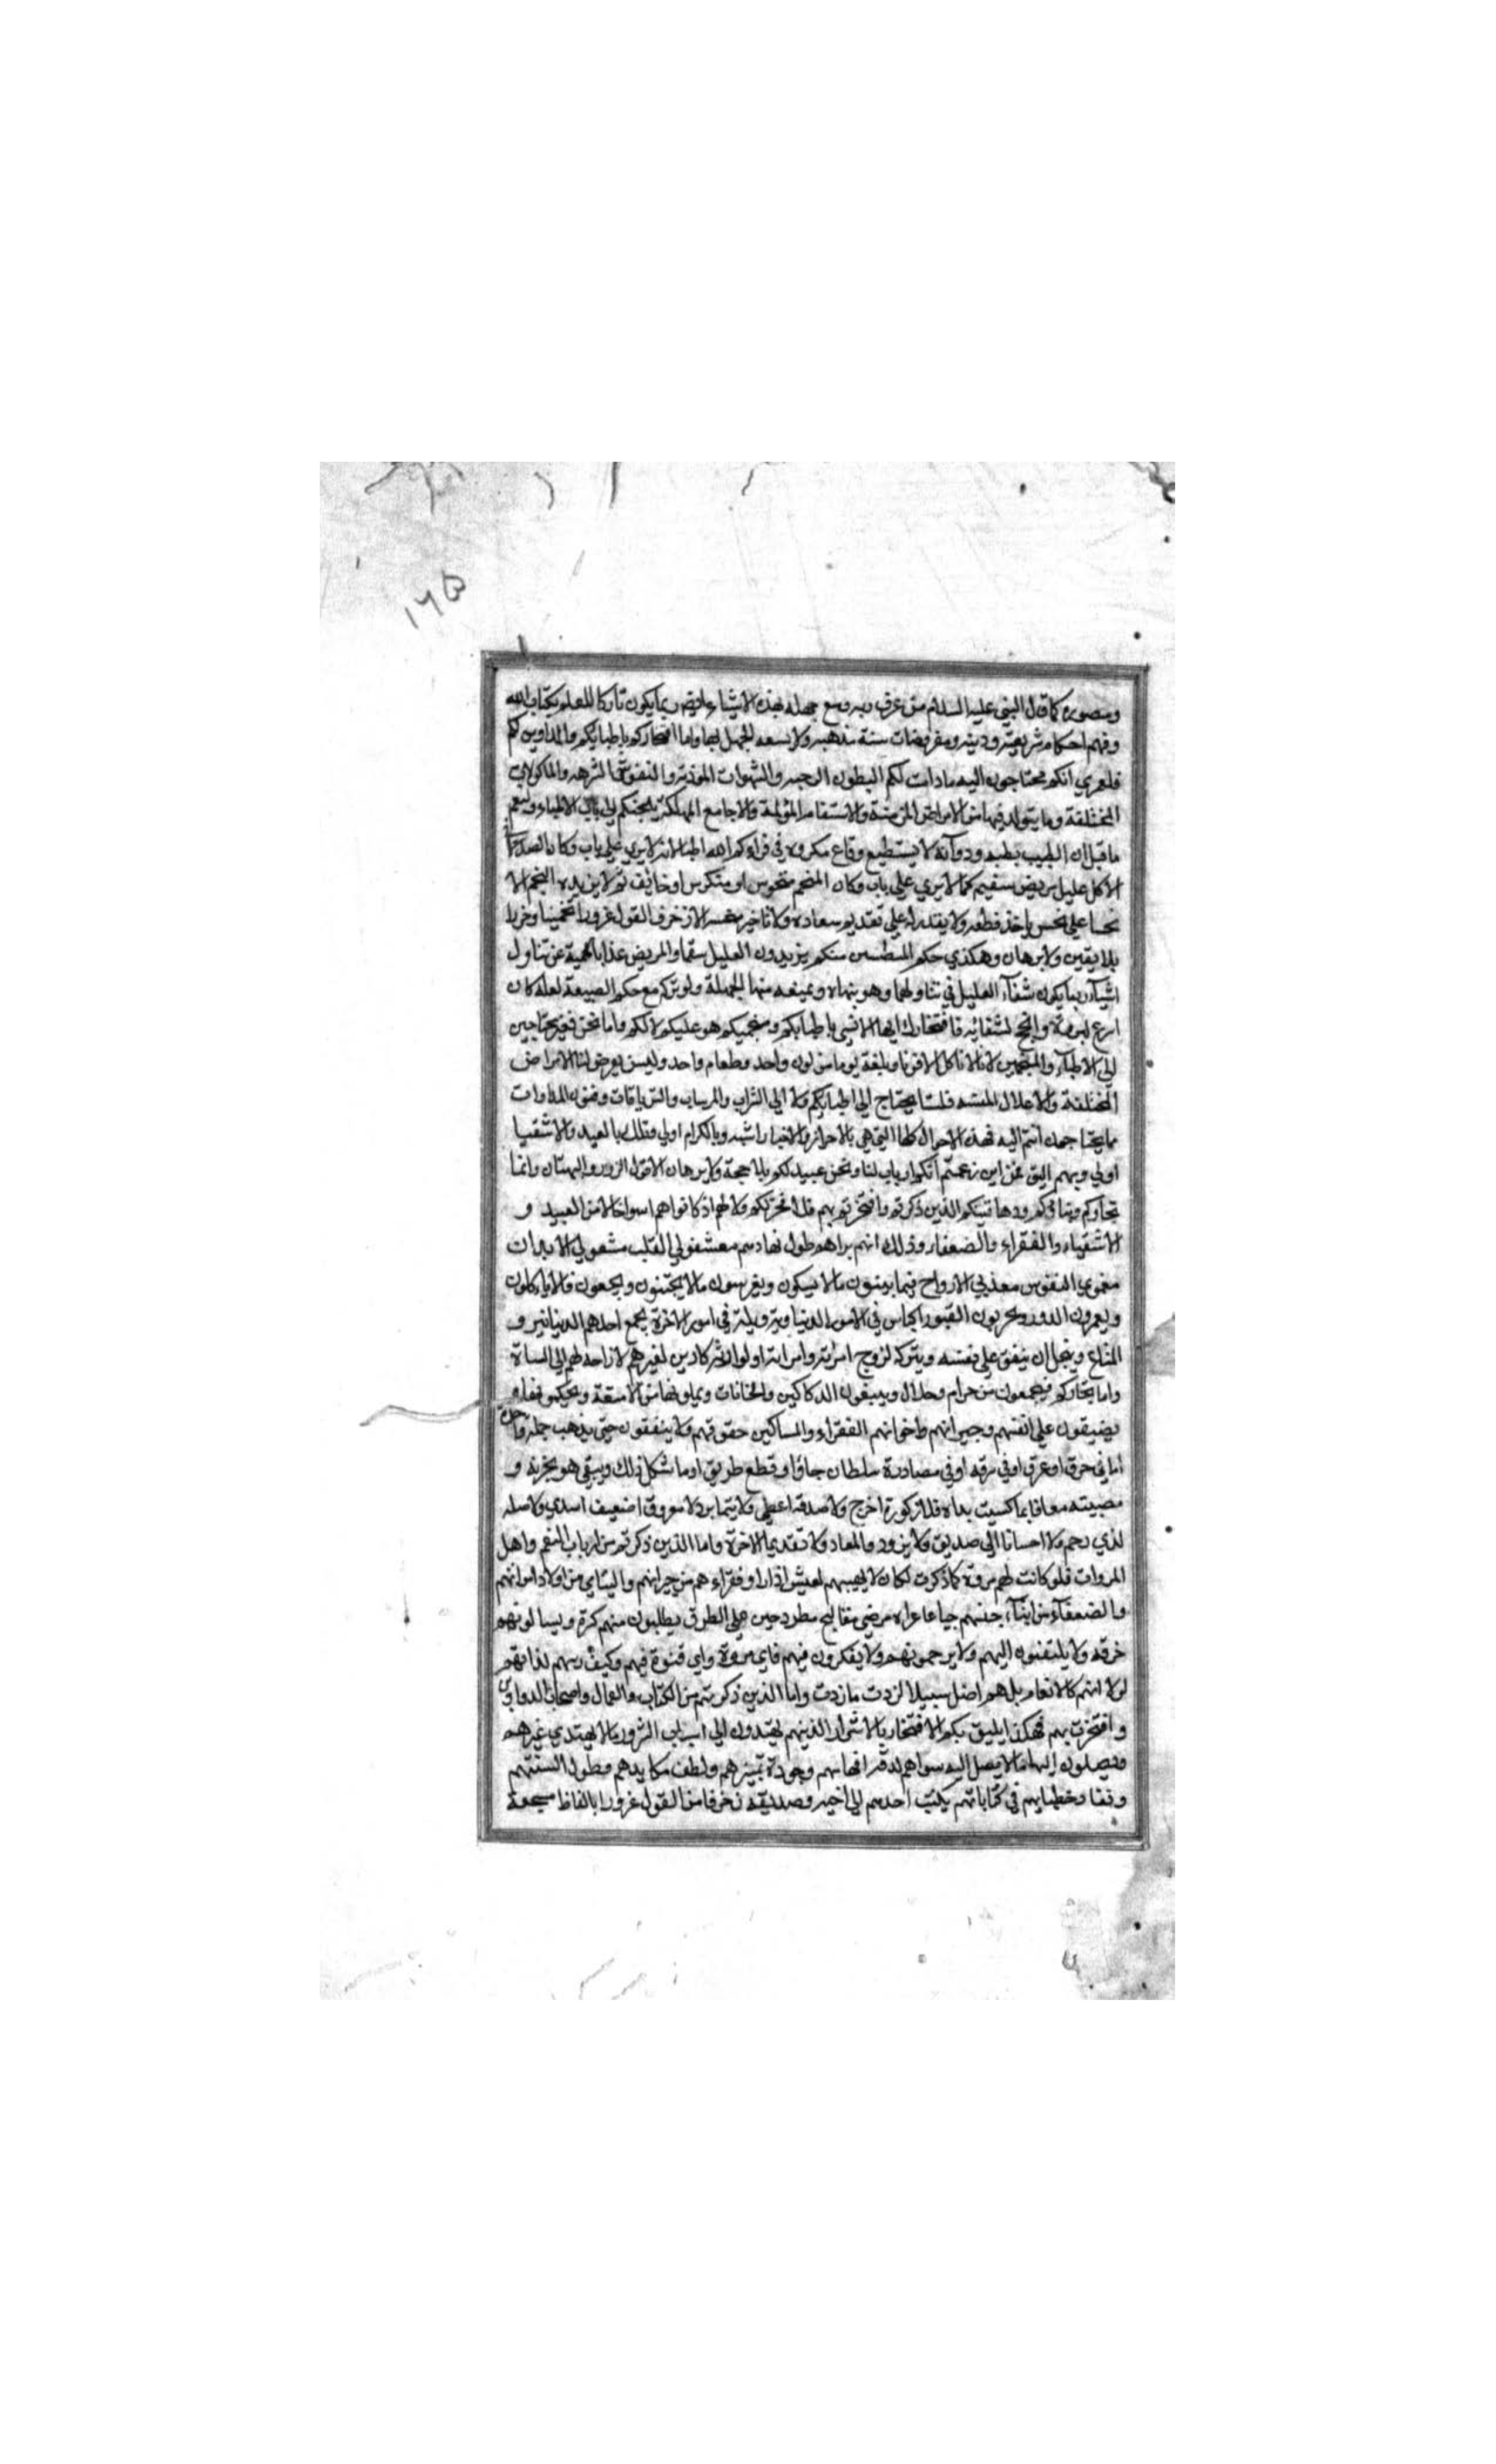 ١٦٥
كما قال النبي عليه السلام من عرف بهذه الاشياء يكون تاركا للعلم بكتاب الله
وفهم احكام شريعته ودينه ومفروضات سنة مذهبه ولا يسعه الجهل بها واما افتخاركم باطبايكم والمداوين لكم
فلعمري انكم محتاجون اليه مادامت لكم البطون الرحبه والشهوات الموذيه والنفوس الشرهه والماكولات
المختلفة وما يتولد فيها من الامراض المزمنة والاسقام المؤلمة والاوجاع المهلكة يلجئكم الي باب الاطباء ولنعم
ما قيل ان الطبيب بطبه ودوآئه لا يستطيع دفاع مكروه لا يري علي باب دكان
الا كل عليل مريض سقيم كما لا يري علي باب دكان المنجم الا منحوس او منكوس او خائف ثم لا يزيده المنجم الا
نحسا علي نحس ياخذ قطعه ولا يقدر له علي تقديم سعاده ولا تاخير الا زخرف القول غرورا تخمينا وحزرا
بلا يقين ولا برهان وهكذي حكم المتطببين منكم يزيدون العليل سقما والمريض عذابا بالحمية عن تناول
اشيآء ربما يكون شفآء العليل في تناولها وهو ينهاه ويمنعه منها لجهله ولو تركه مع حكم الطبيعة لعله كان
اسرع لبرئه وانجح لشفائه فافتخارك ايها الانسي باطبايكم ومنجميكم هو عليكم لا لكم واما نحن فغير محتاجين
الي الاطبآء والمنجمين لانا لا ناكل الا قوتا وبلغة يوما من لون واحد وطعام واحد وليس يعرض لنا الامراض
المختلفة والاعلال فلسنا نحتاج الي اطبايكم ولا الي الشراب والترياقات وفنون المداوات
مما يحتاجون انتم اليه فهذه الاحوال كلها التي هي بالاحرار والاخيار اشبه وبالكرام اولي وتلك بالعبيد والاشقيا
اولي وبهم اليق فمن اين زعمتم انكم ارباب لنا ونحن عبيد لكم بلا حجة ولا برهان الا قول الزور والبهتان واما
تجاركم ودهاقينكم الذين ذكرتم وافتخرتم بهم فلا فخر لكم ولا لهم اذ كانوا هم اسوا حالا من العبيد و
الاشقياء والفقراء والضعفاء وذلك انهم تراهم طول نهارهم القلب الابدان
مغمومي النفوس معذبي الارواح فيما يبنون ما لا يسكنون ويغرسون ما لا يجتنون ويجمعون ما لا ياكلون
ويعمرون الدور ويخربون القبور اكياس في امور الدنيا وبله في امور الاخرة يجمع احدهم الدنانير و
المتاع ويبخل ان ينفق علي نفسه ويتركه لزوج امرأته
واما تجاركم فيجمعون من حرام وحلال ويبنون الدكاكين والخانات ويملونها من الامتعة ويحتكرونها و
يضيقون علي انفسهم وجيرانهم واخوانهم الفقراء والمساكين حقوقهم ولا ينفقون حتي يذهب جملة واحدة
اما في حرق او غرق او في سرقه او في مصادرة سلطان جائر او قطع طريق او ما شاكل ذلك ويبقي هو بحزنه و
مصيبته معاقبا بما كسبت يداه فلا زكوة اخرج ولا صدقه اعطي ولا يتيما بر ولا معروفا لضعيف اسدي ولا صله
لذي رحم ولا احسانا الي صديق ولا تزود للمعاد ولا تقديما لاخرة واما الذين ذكرتم من ارباب النعم واهل
المروات فلو كانت لهم مروة كما ذكرت لكان لا يهنيهم العيش اذا راوا فقراءهم من جيرانهم واليتامي من اولاد اخوانهم
والضعفآء من ابنآء جنسهم جياعا عراة مرضي مفاليج مطروحين علي الطرق يطلبون منهم كسرة ويسالونهم
خرقه ولا يلتفتون اليهم ولا يرحمونهم ولا يفكرون فيهم فاي مروة واي فتوة فيهم
لولا انهم كالانعام بل هم اضل سبيلا واما الذين ذكرتهم من الكتاب والعمال واصحاب الدواوين
وافتخرت بهم فهكذا يليق بكم الافتخار بالاشرار الذين هم يهتدون الي اسباب الشرور ما لا يهتدي غيرهم
ويصلون اليها ما لا يصل اليه سواهم لدقة افهامهم وجودة تميزهم ولطف مكايدهم وطول السنتهم
ونفاد خطابهم في كتاباتهم يكتب احدهم الي اخيه وصديقه زخرفا من القول غرورا بالفاظ مسجعة